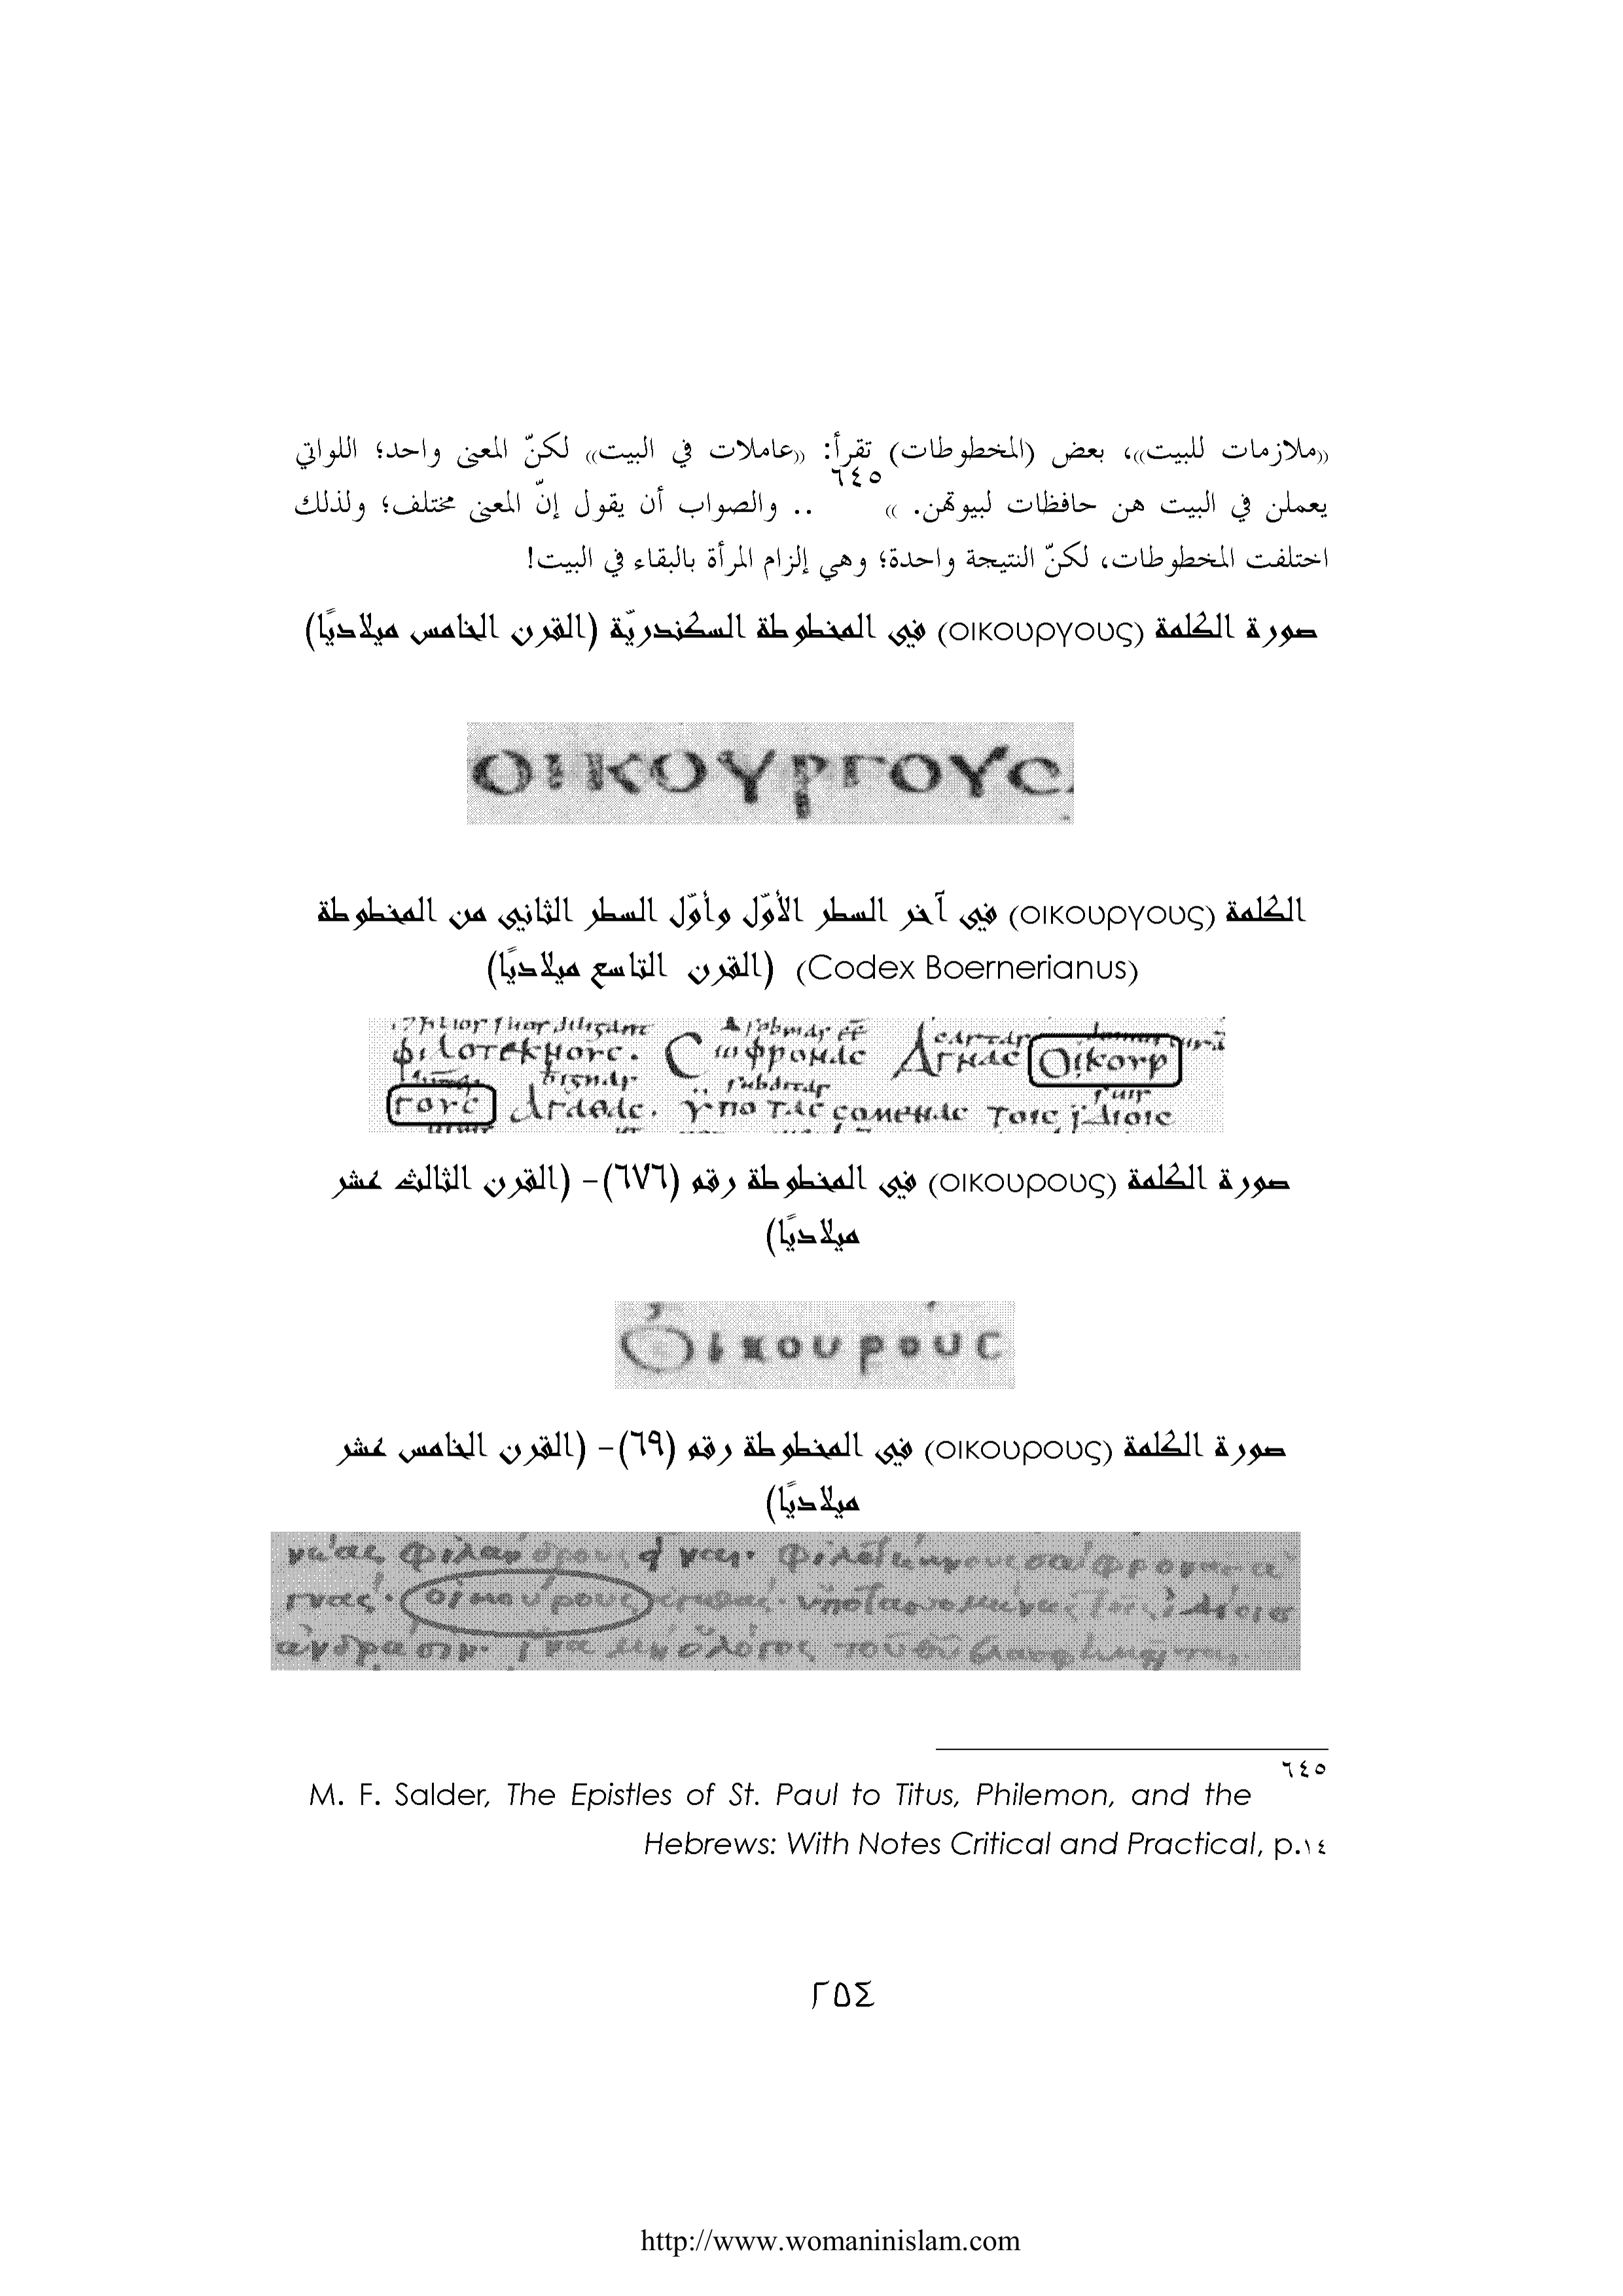 «ملازمات للبيت»، بعض (المخطوطات) تقرأ: «عاملات في البيت» لكنّ المعنى واحد؛ اللواتي
يعملن في البيت هن حافظات لبيوتهن. »٦٤٥ .. والصواب أن يقول إنّ المعنى مختلف؛ ولذلك
اختلفت المخطوطات، لكنّ النتيجة واحدة؛ وهي إلزام المرأة بالبقاء في البيت!
صورة الكلمة (οικουργους) في المخطوطة السكندريّة (القرن الخامس ميلاديًا)
ΟΙΚΟΥΡΓΟΥϹ
الكلمة (οικουργους) في آخر السطر الأوّل وأوّل السطر الثاني من المخطوطة
(Codex Boernerianus) (القرن التاسع ميلاديًا)
φιλοτεκνουϲ. Ϲωφροναϲ Αγναϲ Οικουρ
γουϲ Αγαθαϲ. ϋποταϲϲομεναϲ τοιϲ ϊδιοιϲ
صورة الكلمة (οικουρους) في المخطوطة رقم (٦٧٦)- (القرن الثالث عشر
ميلاديًا)
Οικουρούϲ
صورة الكلمة (οικουρους) في المخطوطة رقم (٦٩)- (القرن الخامس عشر
ميلاديًا)
φιλάνδρους
γνάς· οἰκούρους ἀγαθάς·
ἀνδράσιν· ἵνα μὴ ὁ λόγος τοῦ
٦٤٥
M. F. Salder, The Epistles of St. Paul to Titus, Philemon, and the
Hebrews: With Notes Critical and Practical, p.١٤
٢٥٤
http://www.womaninislam.com